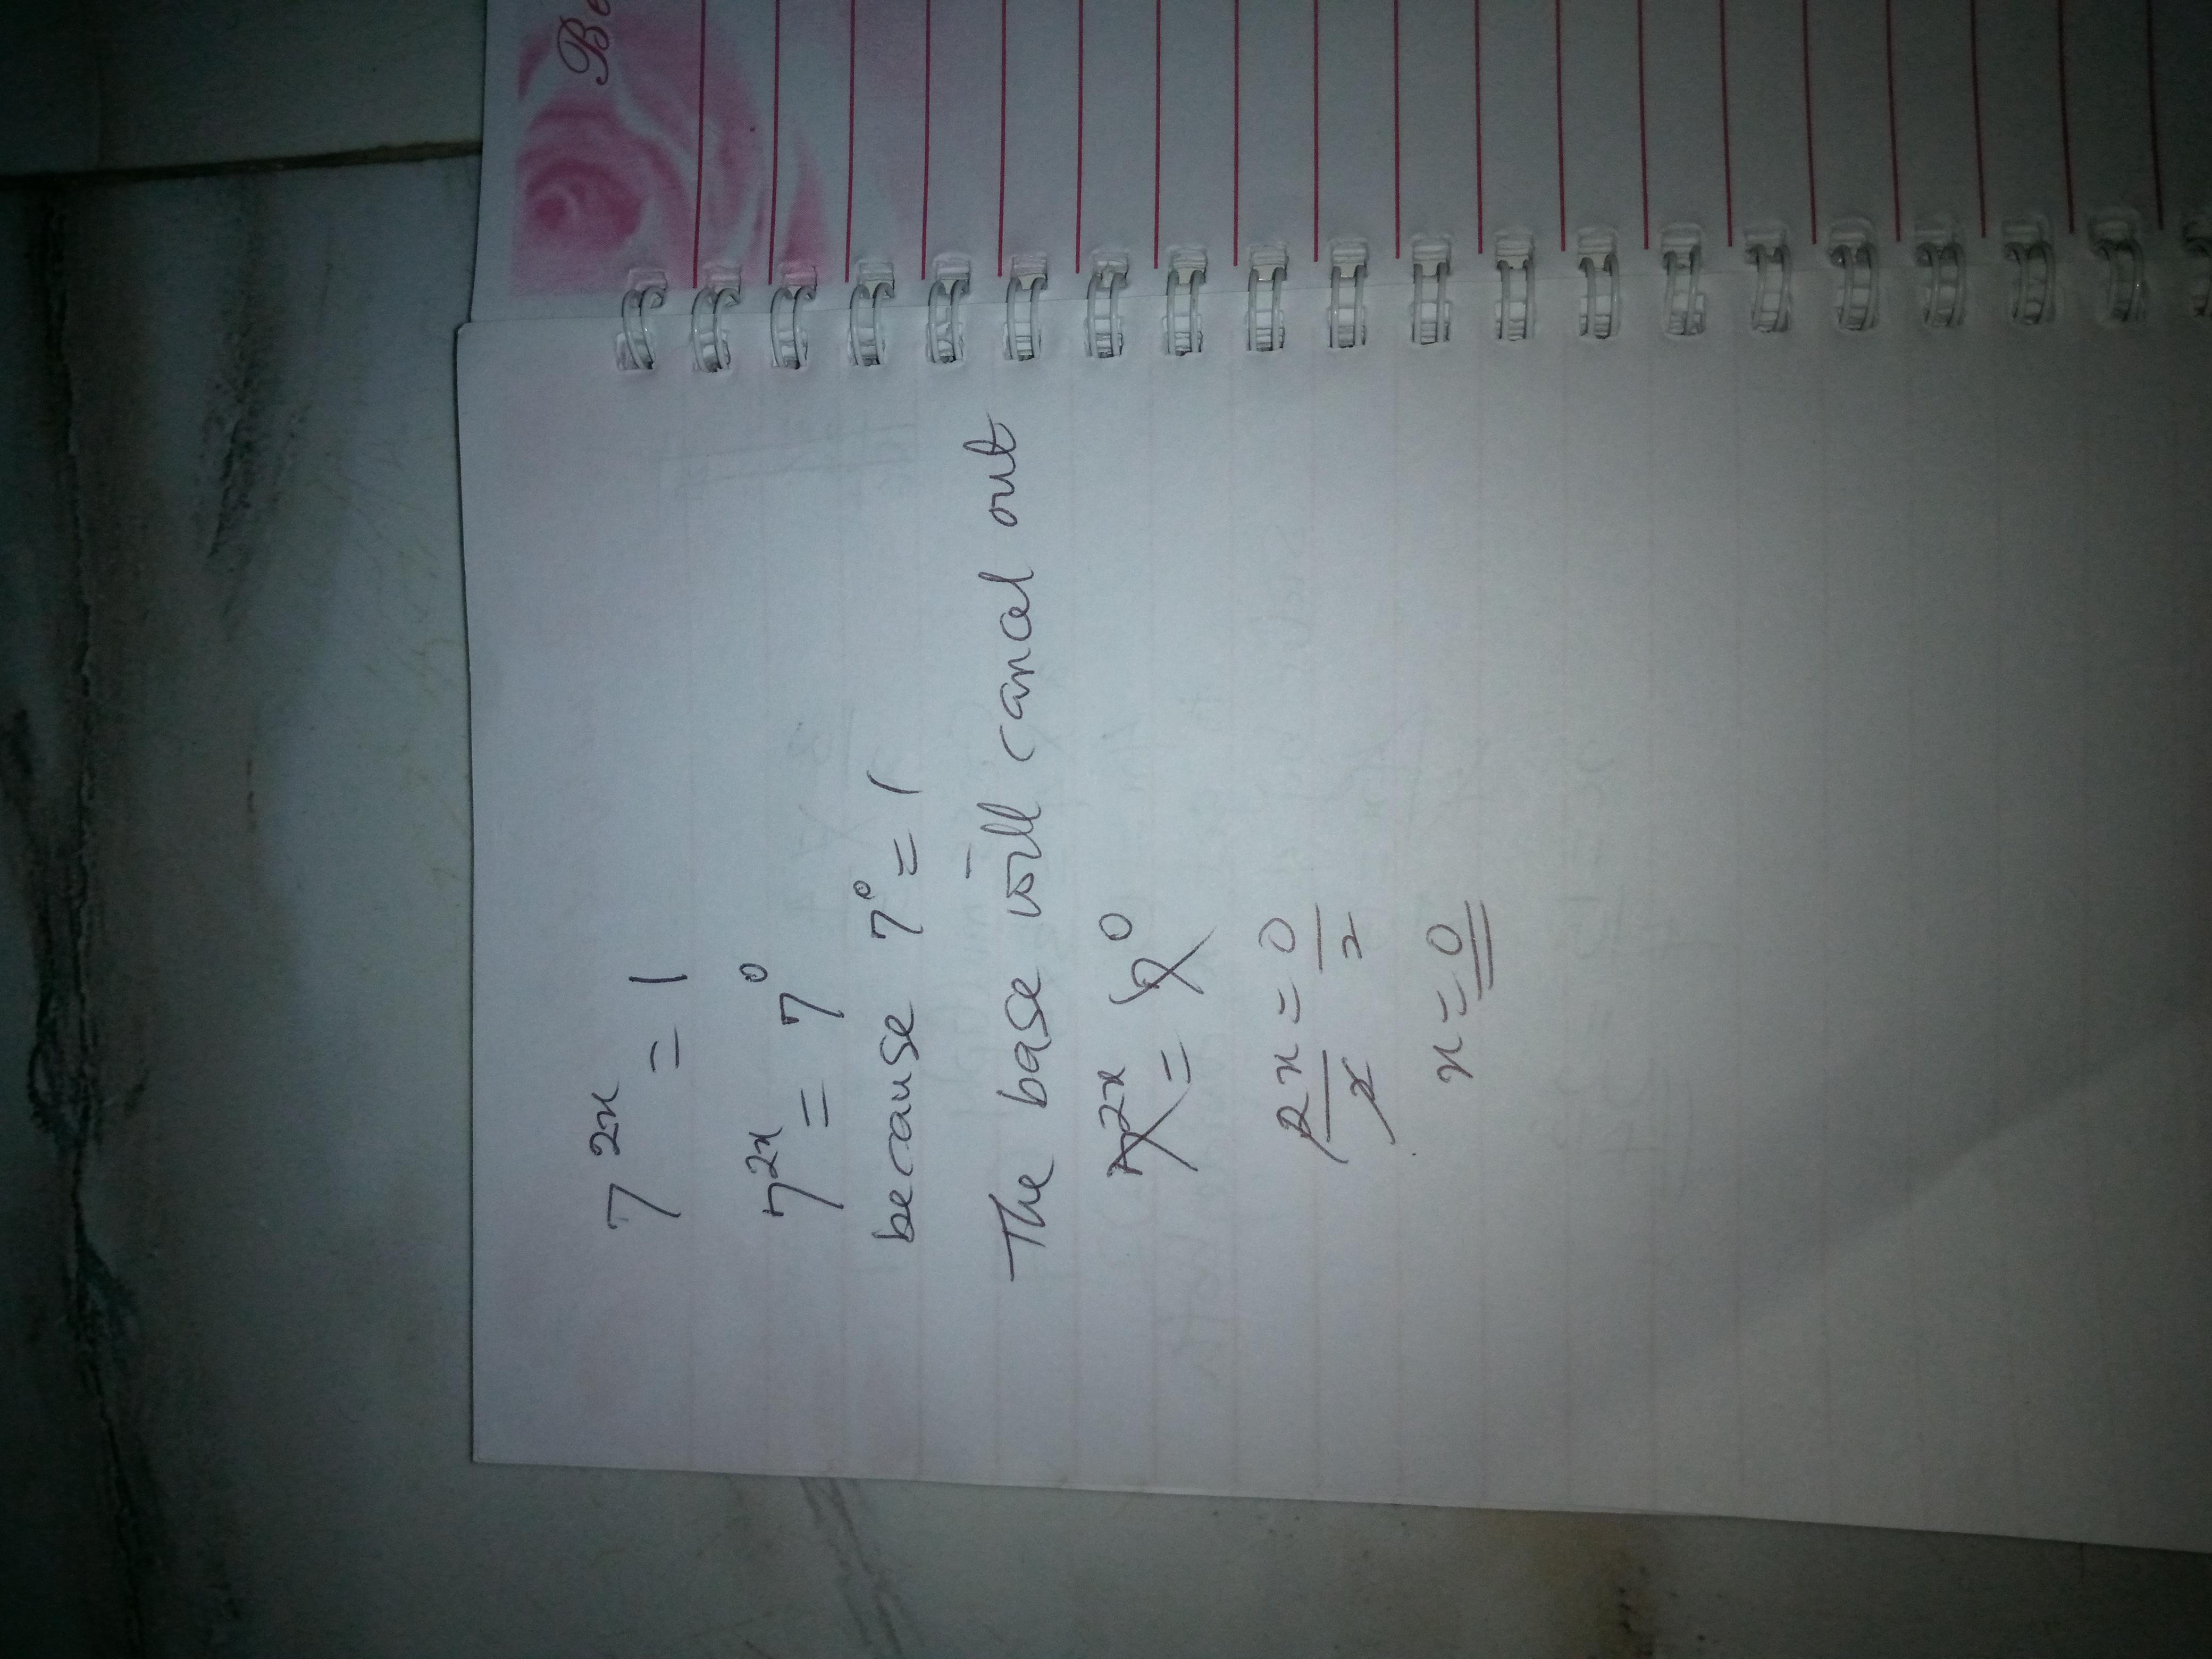 Be
7^2x = 1
7^2x = 7^0
because 7^0 = 1
The base will cancel out
7^2x = 7^0
2x = 0
2 2
x = 0